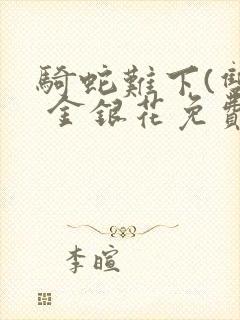 騎蛇難下(雙
金銀花免費
李暄